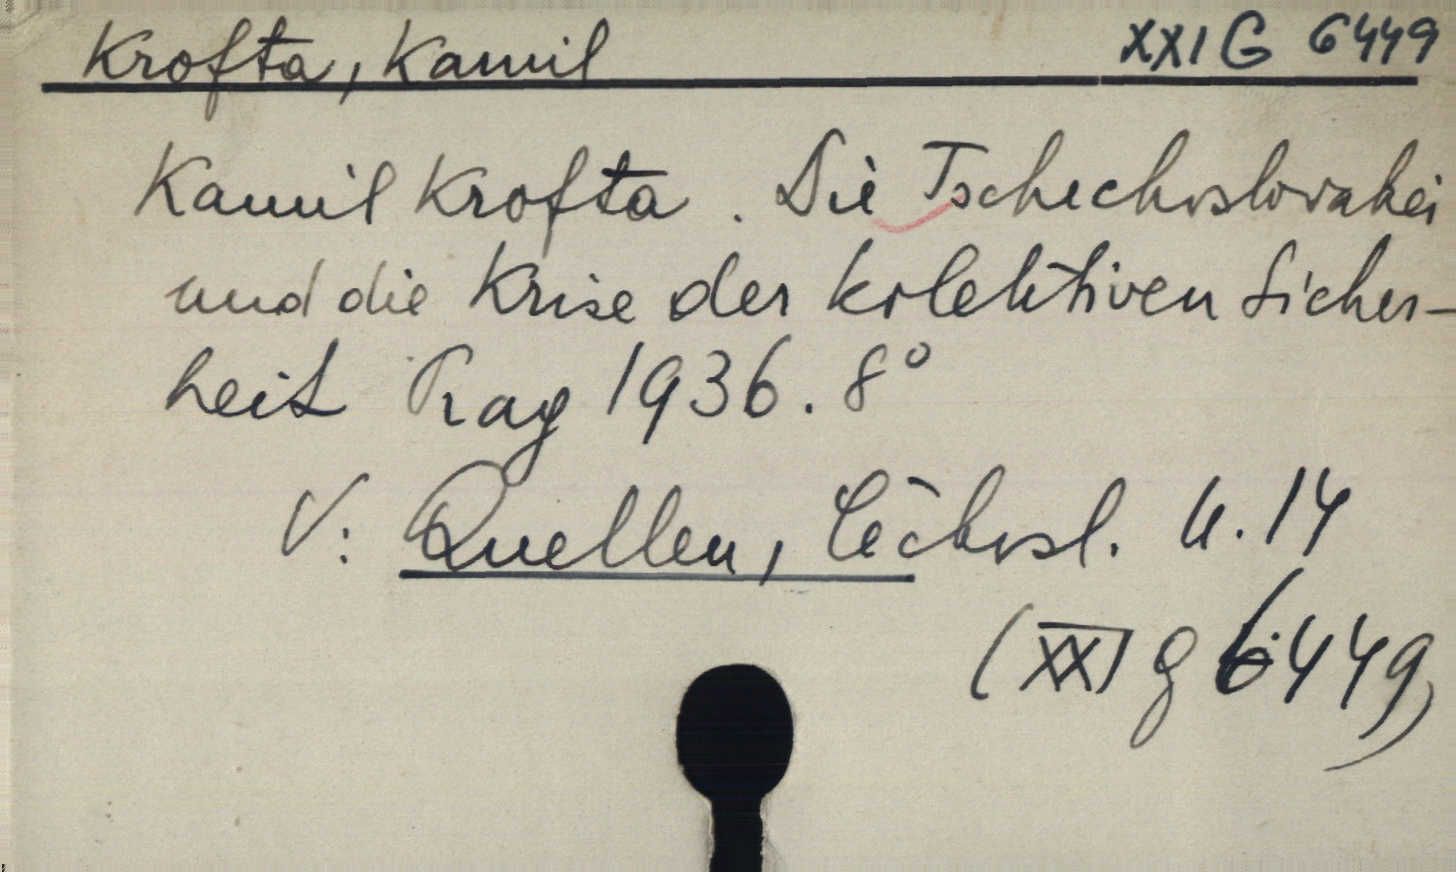 Krofta, Kamil XXI G 6449
Kamil Krofta. Die Tschechoslovakei
und die Krise der kolektiven Sicher-
heit Prag 1936. 8°
V: Quellen, Čechosl. u. 14
(XXI g 6449)